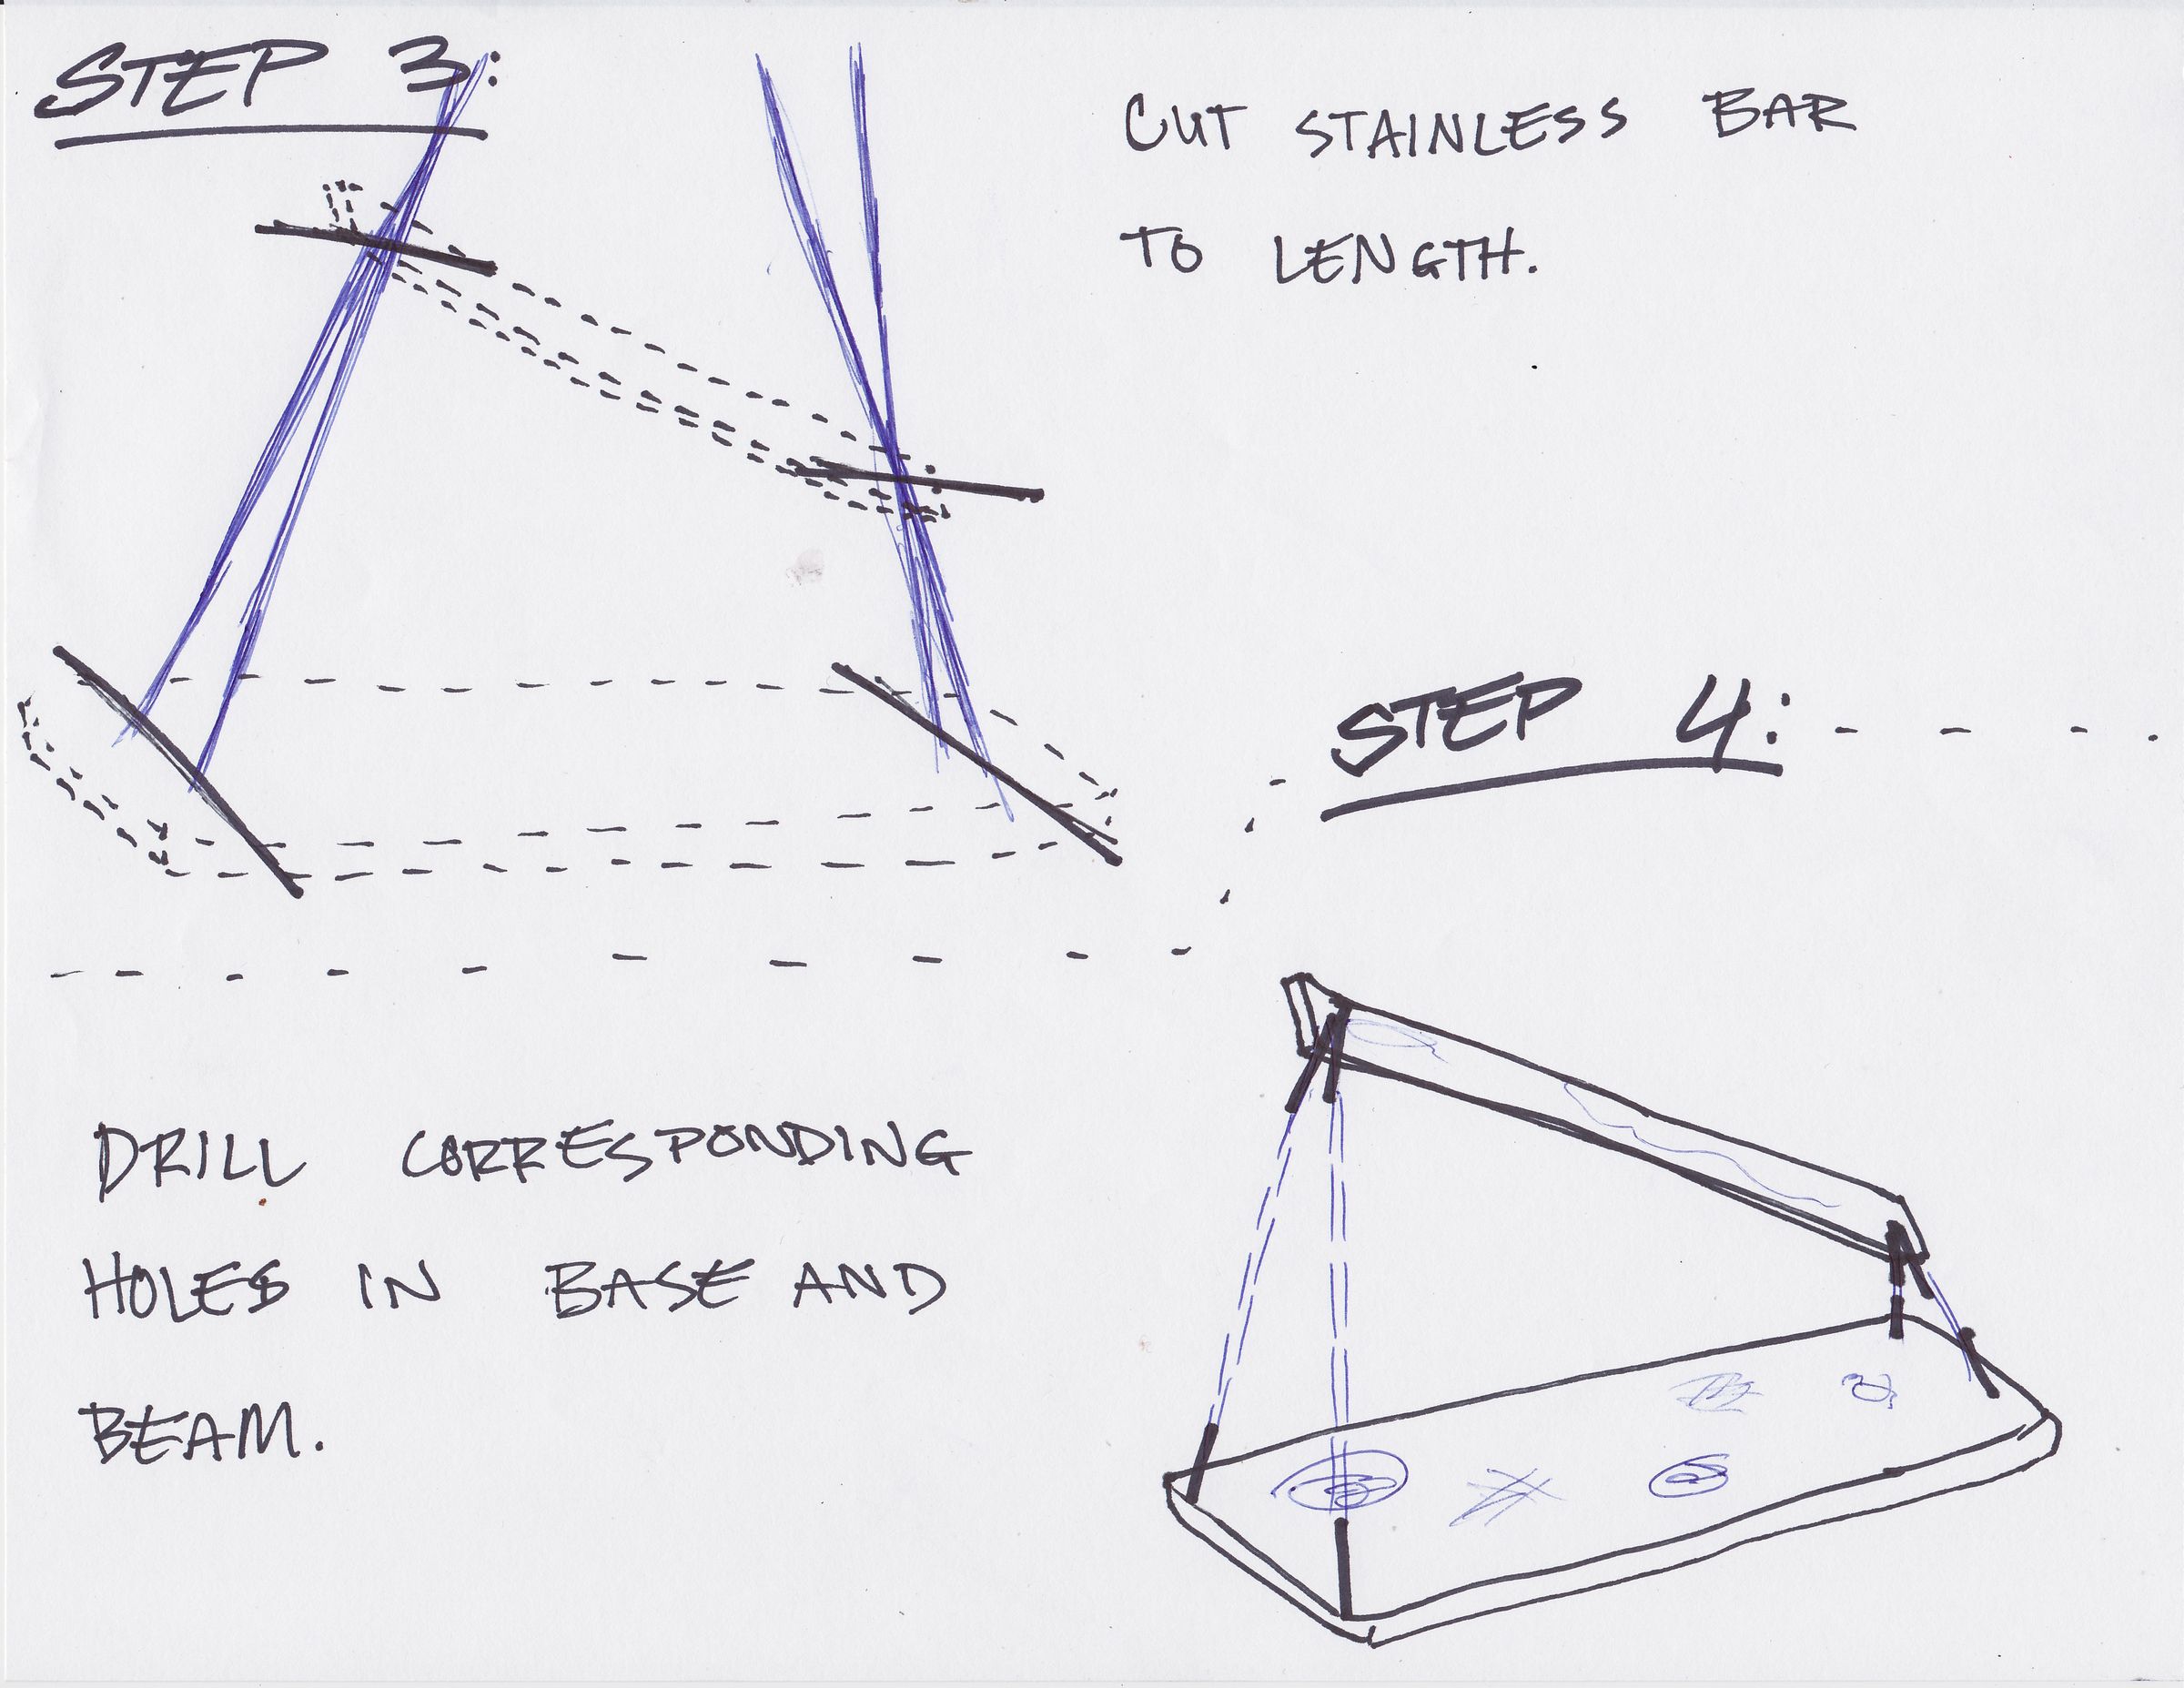 STEP 3:
CUT STAINLESS BAR
TO LENGTH.
STEP 4:
DRILL CORRESPONDING
HOLES IN BASE AND
BEAM.